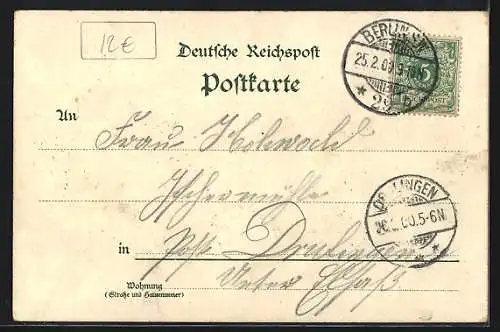 12€
Deutsche Reichspost
Postkarte
BERLIN S.W.
25.2.00.9-10N
* 29
5
POST
An
Frau Holwald
DRULINGEN
26.2.00.5-6N
in Post Drulingen
Unter Elsaß
Wohnung
(Straße und Hausnummer)